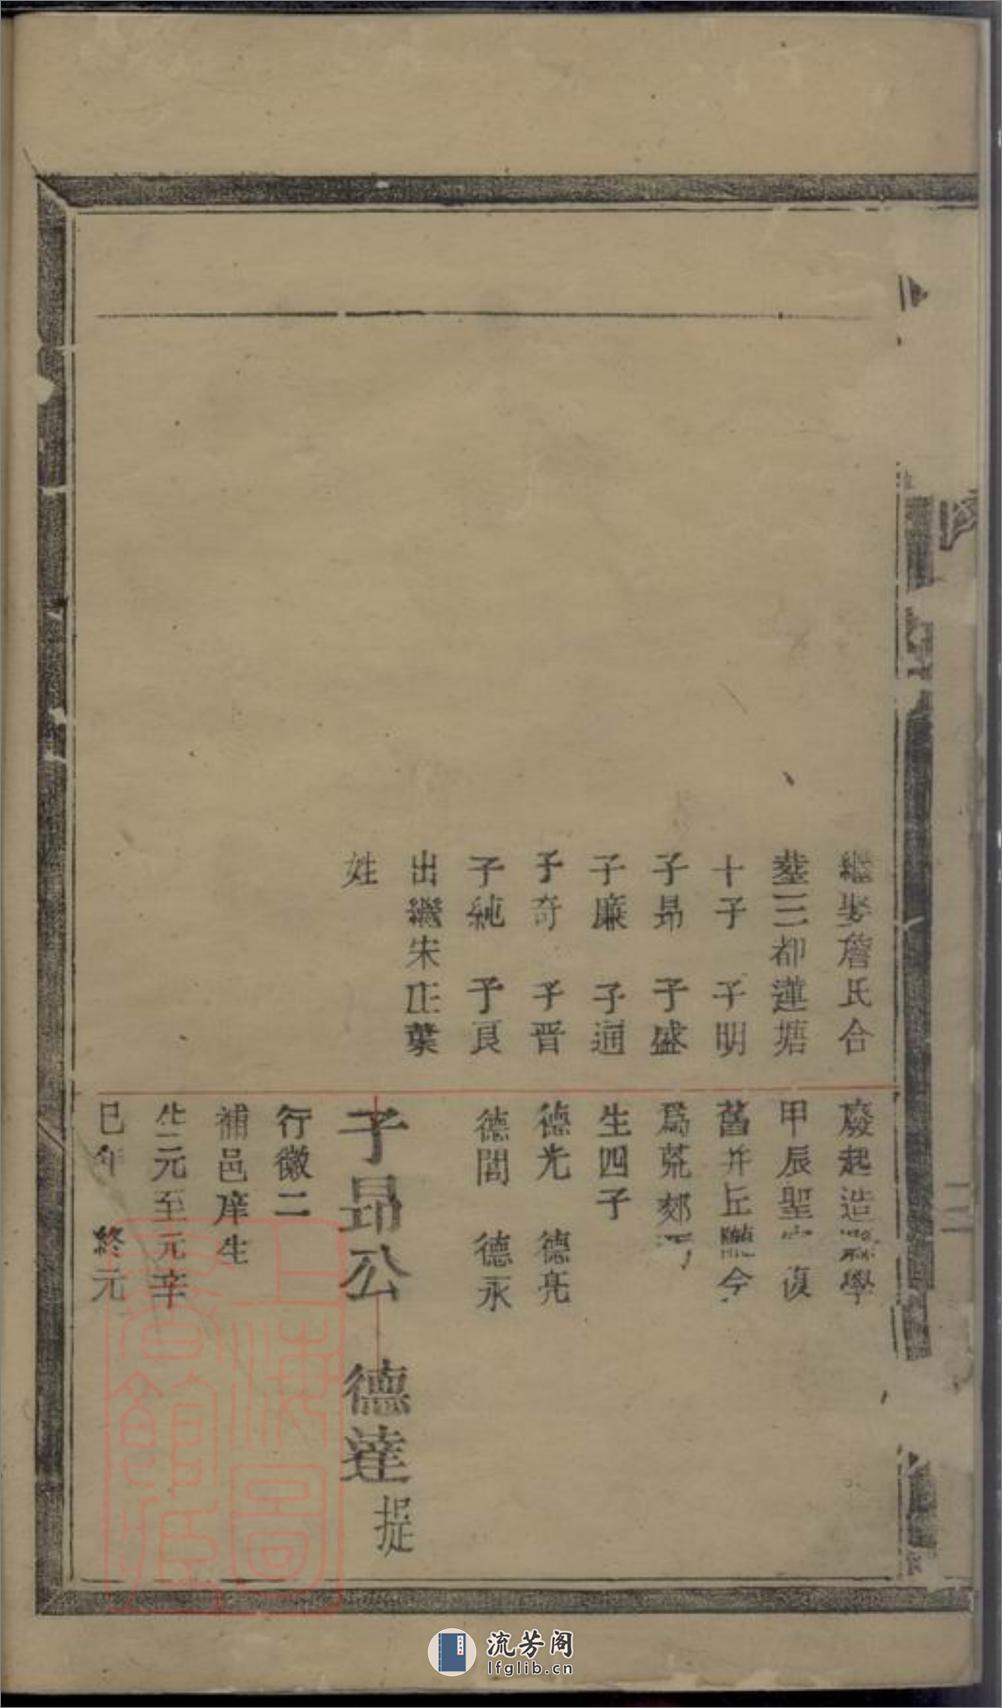 繼娶詹氏合
塟三都蓮塘
十子 子明
子昴 子盛
子廉 子通
子奇 子晋
子純 子良
出繼宋庄葉
姓
廢起造縣學
甲辰聖 復
舊并丘隴今
爲荒郊
生四子
德光 德亮
德誾 德永
子昴公 德達 提
行徽二
補邑庠生
生元至元辛
巳年 終元
上海圖書館藏
流芳阁
lfglib.cn